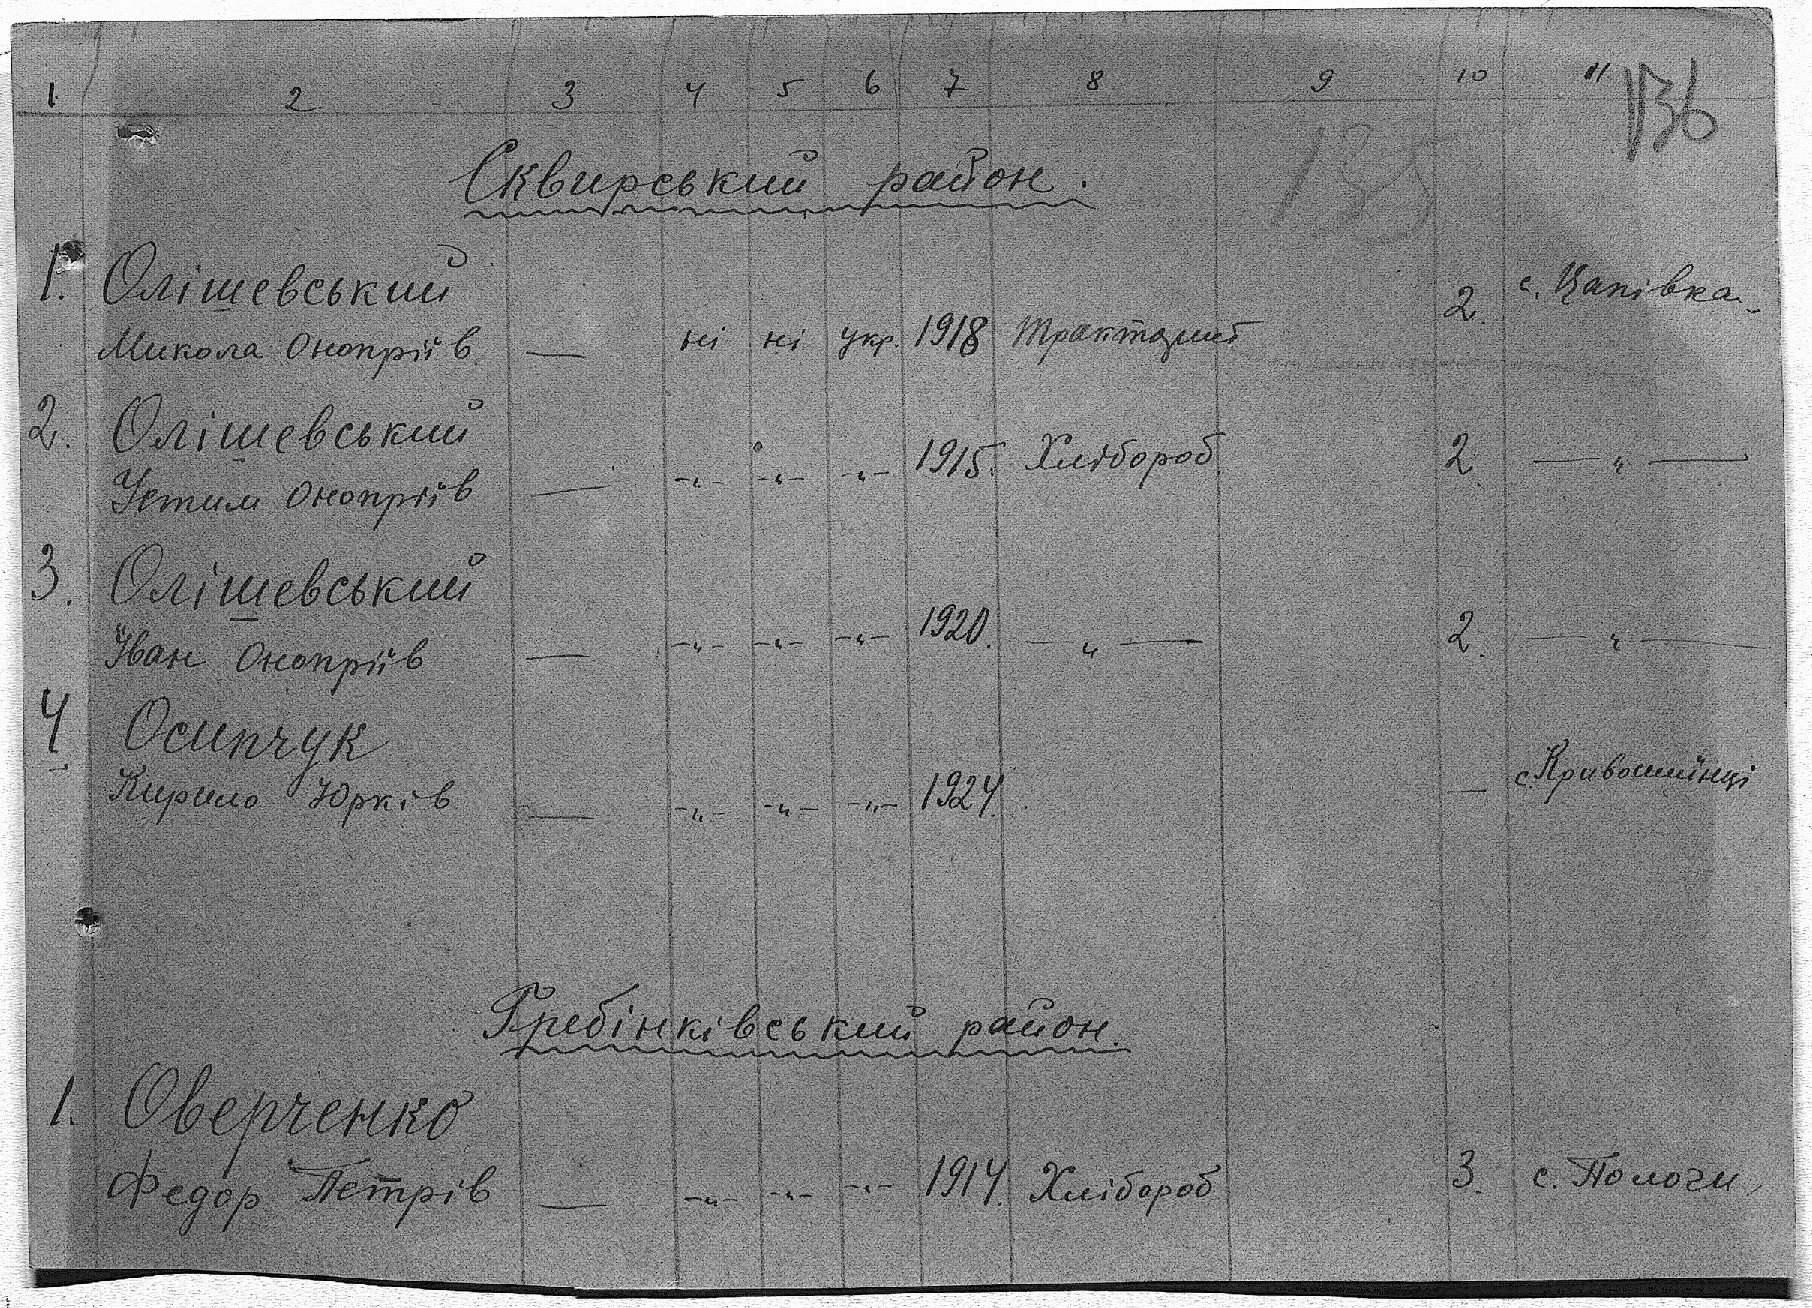 1 2 3 4 5 6 7 8 9 10 11
136
135
Сквирський район.
1. Олішевський
Микола Онопріїв — ні ні укр. 1918 Тракторист 2. с. Цапівка
2. Олішевський
Устим Онопріїв — -"- -"- -"- 1915. Хлібороб 2. — " —
3. Олішевський
Іван Онопріїв — -"- -"- -"- 1920. — " — 2. — " —
4 Осипчук
Кирило Юрків — -"- -"- -"- 1924. — с. Кривошиїнці
Гребінківський район.
1. Оверченко
Федор Петрів — -"- -"- -"- 1914. Хлібороб 3. с. Пологи